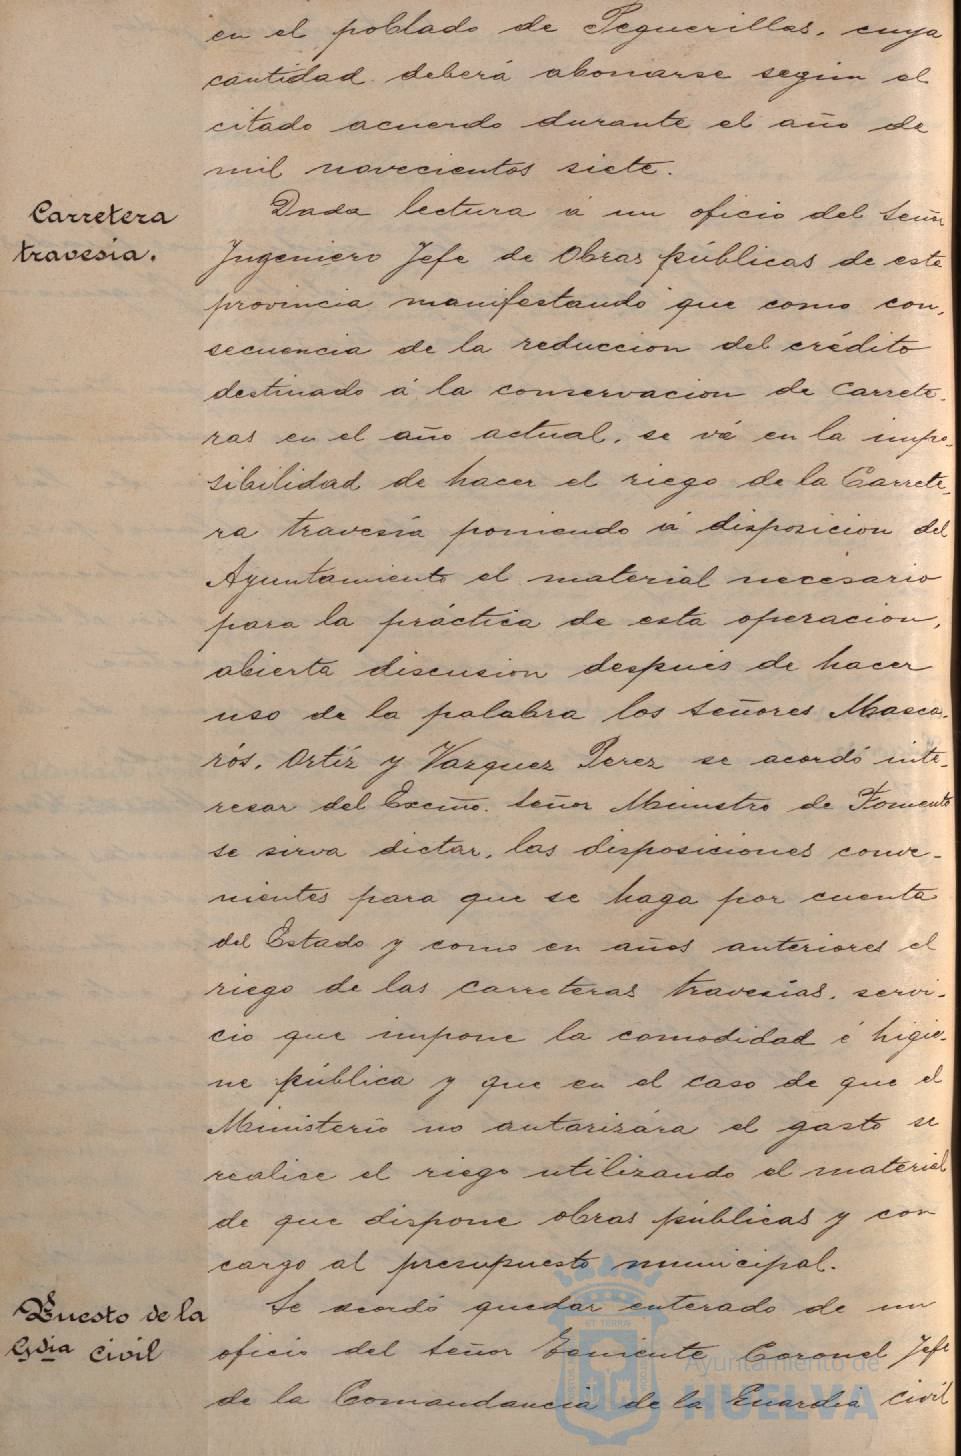 en el poblado de Peguerillas, cuya
cantidad deberá abonarse según el
citado acuerdo durante el año de
mil novecientos siete.
Carretera
travesía.
Dada lectura á un oficio del Señor
Ingeniero Jefe de Obras públicas de este
provincia manifestando que como con-
secuencia de la reduccion del crédito
destinado á la conservacion de Carrete-
ras en el año actual, se vé en la impo-
sibilidad de hacer el riego de la Carrete-
ra travesía poniendo á disposicion del
Ayuntamiento el material necesario
para la práctica de esta operacion,
abierta discusion después de hacer
uso de la palabra los señores Masca-
rós, Ortíz y Vazquez Perez se acordó inte-
resar del Excmo. Señor Ministro de Fomento
se sirva dictar, las disposiciones conve-
nientes para que se haga por cuenta
del Estado y como en años anteriores el
riego de las carreteras travesías, servi-
cio que impone la comodidad é higie-
ne pública y que en el caso de que el
Ministerio no autorizára el gasto se
realice el riego utilizando el material
de que dispone obras públicas y con
cargo al presupuesto municipal.
Puesto de la
Gdia Civil
Se acordó quedar enterado de un
oficio del Señor Teniente Coronel Jefe
de la Comandancia de la Guardia Civil
Ayuntamiento de
HUELVA